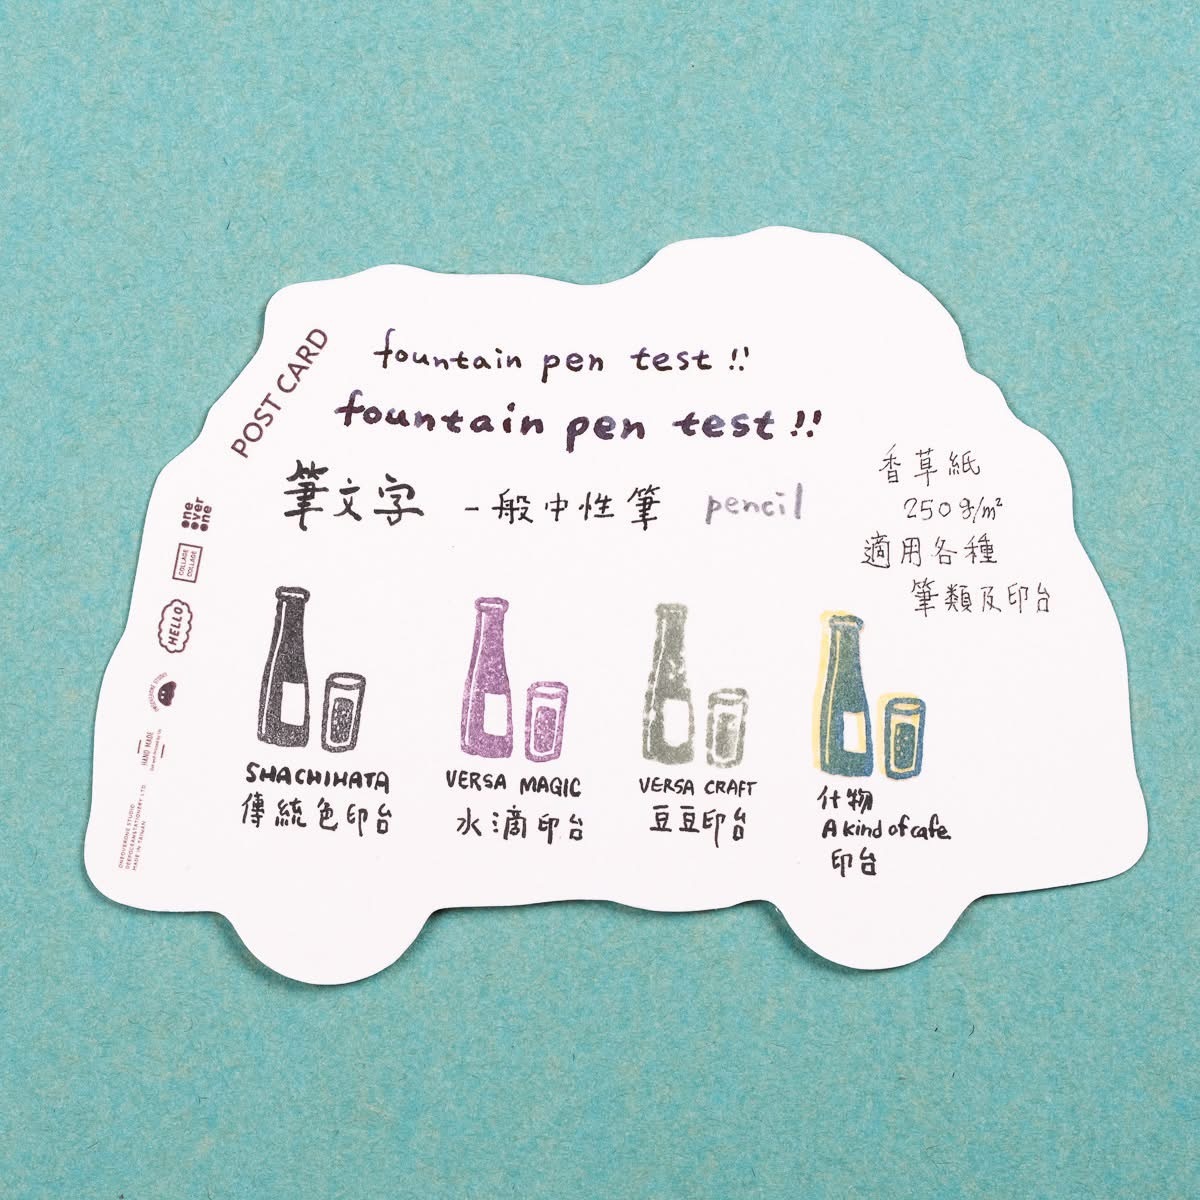 POST CARD
fountain pen test !!
fountain pen test !!
筆文字 一般中性筆 pencil
香草紙
250g/m²
適用各種
筆類及印台
one
over
one
COLLAGE
COLLAGE
HELLO
HAND MADE
SHACHIHATA
傳統色印台
VERSA MAGIC
水滴印台
VERSA CRAFT
豆豆印台
什物
A kind of cafe
印台
ONEOVERONE STUDIO
DEEPOCEANSTATIONERY LTD
MADE IN TAIWAN